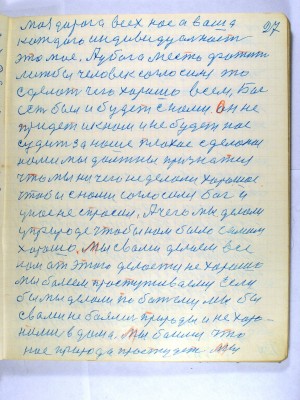 моя дорога всех нас а ваша 27
каждого индивидуальность
это мое. А у бога место
чтобы человек согласился это
сделать чего хорошо всем, Бог
есть был и будет с нами. Он не
придет и к нам и не будет нас
судить за наше плохое сделаное
нами мы должны признатся
что мы ничего не делали хорошое
чтобы с нами согласился Бог и
у нас не спросил. А чего мы делали
у природе чтобы нам было с самим
хорошо. Мы с вами делаем все
нам от этого делается не хорошо
мы балеем простуживаемся Если
бы мы делали по батькому мы бы
с вами не балели природы и не харо-
нили в дома. Мы балеем это
нас природа простудит Мы